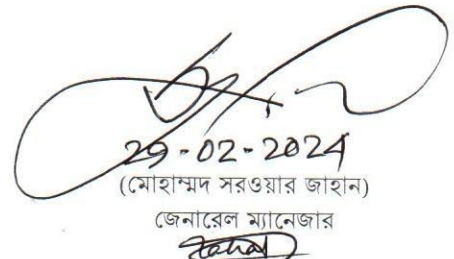 29-02-2024
(মোহাম্মদ সরওয়ার জাহান)
জেনারেল ম্যানেজার